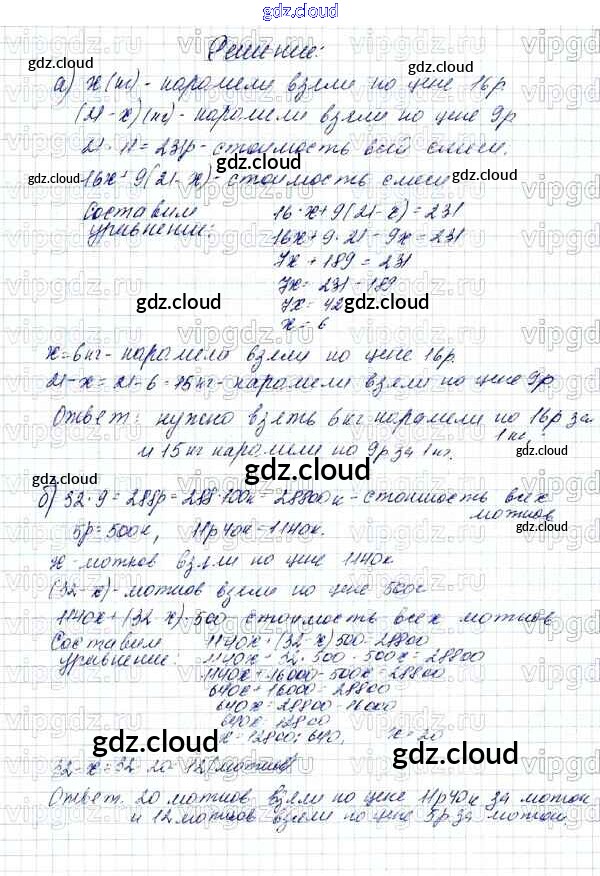 gdz.cloud
Решение:
а) х (кг) - карамели взяли по цене 16р
(21 - х) (кг) - карамели взяли по цене 9р
21 · 11 = 231р - стоимость всей смеси.
16х + 9(21 - х) - стоимость смеси
Составим уравнение:
16·х + 9(21 - х) = 231
16х + 9·21 - 9х = 231
7х + 189 = 231
7х = 231 - 189
7х = 42
х = 6
х = 6 кг - карамели взяли по цене 16р.
21 - х = 21 - 6 = 15 кг - карамели взяли по цене 9р
Ответ: нужно взять 6 кг карамели по 16р за 1 кг,
и 15 кг карамели по 9р за 1 кг.
б) 32 · 9 = 288р = 288·100к = 28800к - стоимость всех мотков
5р = 500к, 11р40к = 1140к.
х - мотков взяли по цене 1140к
(32 - х) - мотков взяли по цене 500к
1140х + (32 - х)·500 стоимость всех мотков
Составим уравнение:
1140х + (32 - х)500 = 28800
1140х + 32·500 - 500х = 28800
1140х + 16000 - 500х = 28800
640х + 16000 = 28800
640х = 28800 - 16000
640х = 12800
х = 12800 : 640, х = 20
32 - х = 32 - 20 = 12 (мотков)
Ответ. 20 мотков взяли по цене 11р40к за моток
и 12 мотков взяли по цене 5р за моток